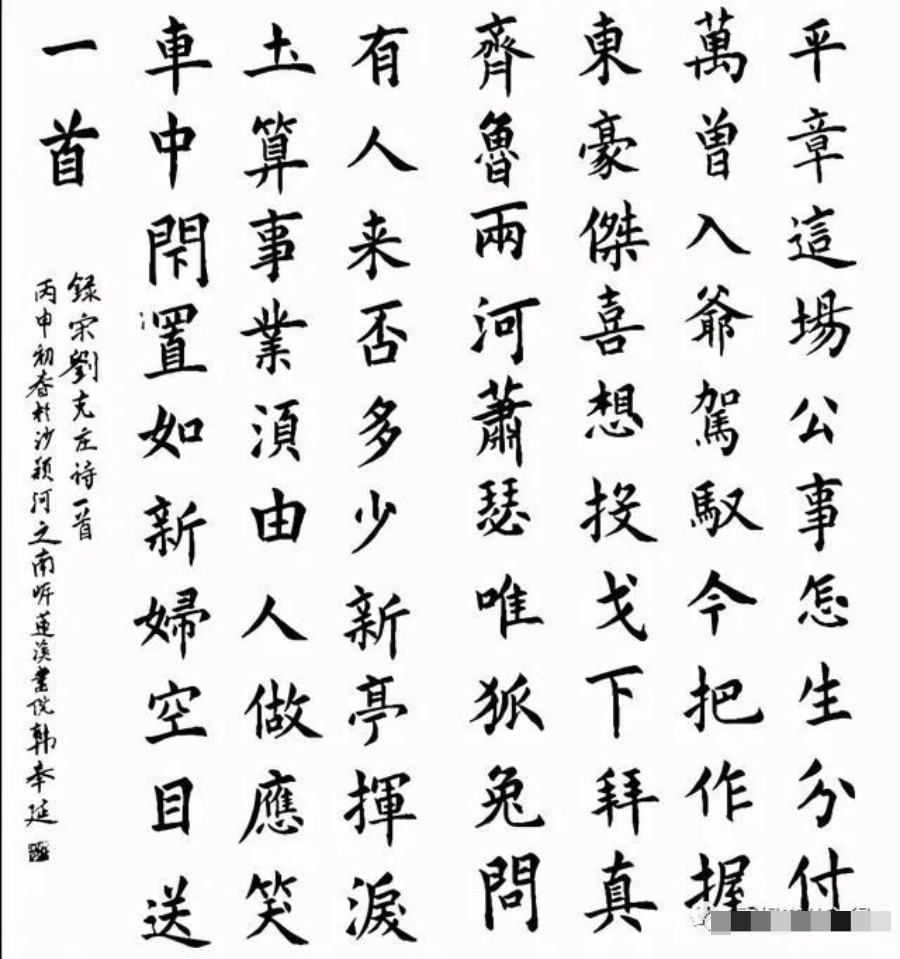 平章這場公事怎生分付
萬曾入爺駕馭今把作握
東豪傑喜想投戈下拜真
齊魯兩河蕭瑟唯狐兔問
有人来否多少新亭揮淚
土算事業須由人做應笑
車中閇置如新婦空目送
一首
録宋劉克庄诗一首
丙申初春於沙颍河之南岍莲溪書院韩奉延